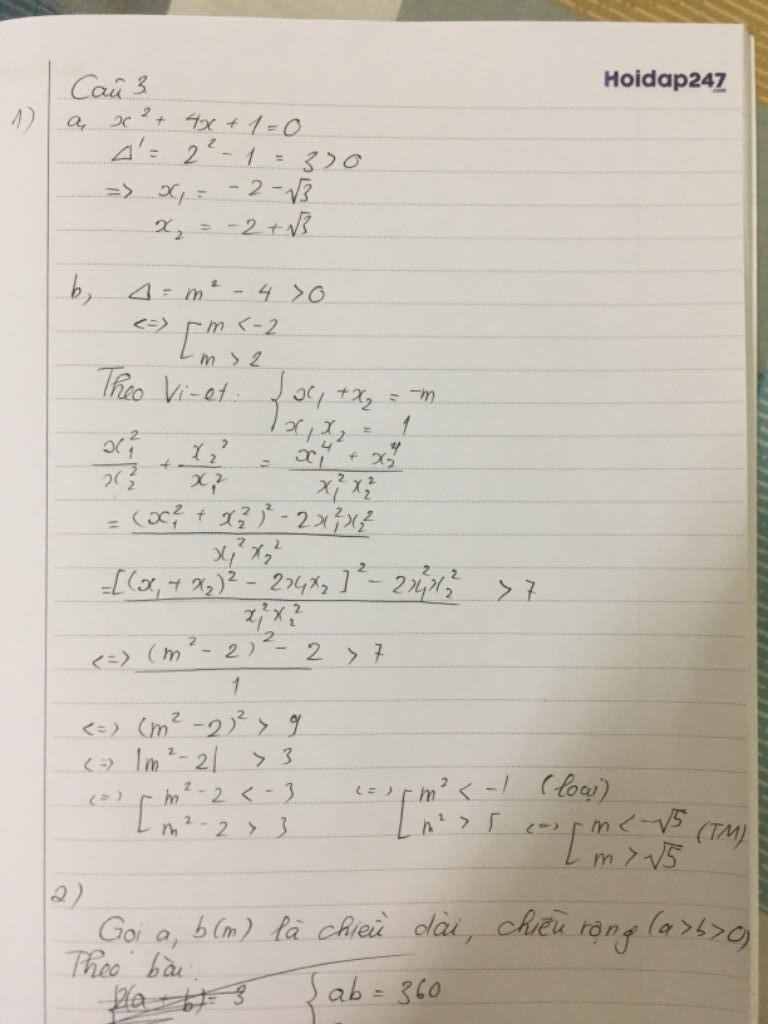 Hoidap247
.com
Câu 3.
1) a, x² + 4x + 1 = 0
Δ' = 2² - 1 = 3 > 0
=> x₁ = -2 - √3
x₂ = -2 + √3
b, Δ = m² - 4 > 0
<=> [ m < -2
m > 2
Theo Vi-et: { x₁ + x₂ = -m
x₁x₂ = 1
x₁²/x₂² + x₂²/x₁² = (x₁⁴ + x₂⁴)/(x₁²x₂²)
= ((x₁² + x₂²)² - 2x₁²x₂²)/(x₁²x₂²)
= ([(x₁ + x₂)² - 2x₁x₂]² - 2x₁²x₂²)/(x₁²x₂²) > 7
<=> ((m² - 2)² - 2)/1 > 7
<=> (m² - 2)² > 9
<=> |m² - 2| > 3
<=> [ m² - 2 < -3 <=> [ m² < -1 (loại)
m² - 2 > 3 m² > 5 <=> [ m < -√5 (TM)
m > √5
2)
Gọi a, b(m) là chiều dài, chiều rộng (a > b > 0)
Theo bài:
2(a + b) = 3 { ab = 360